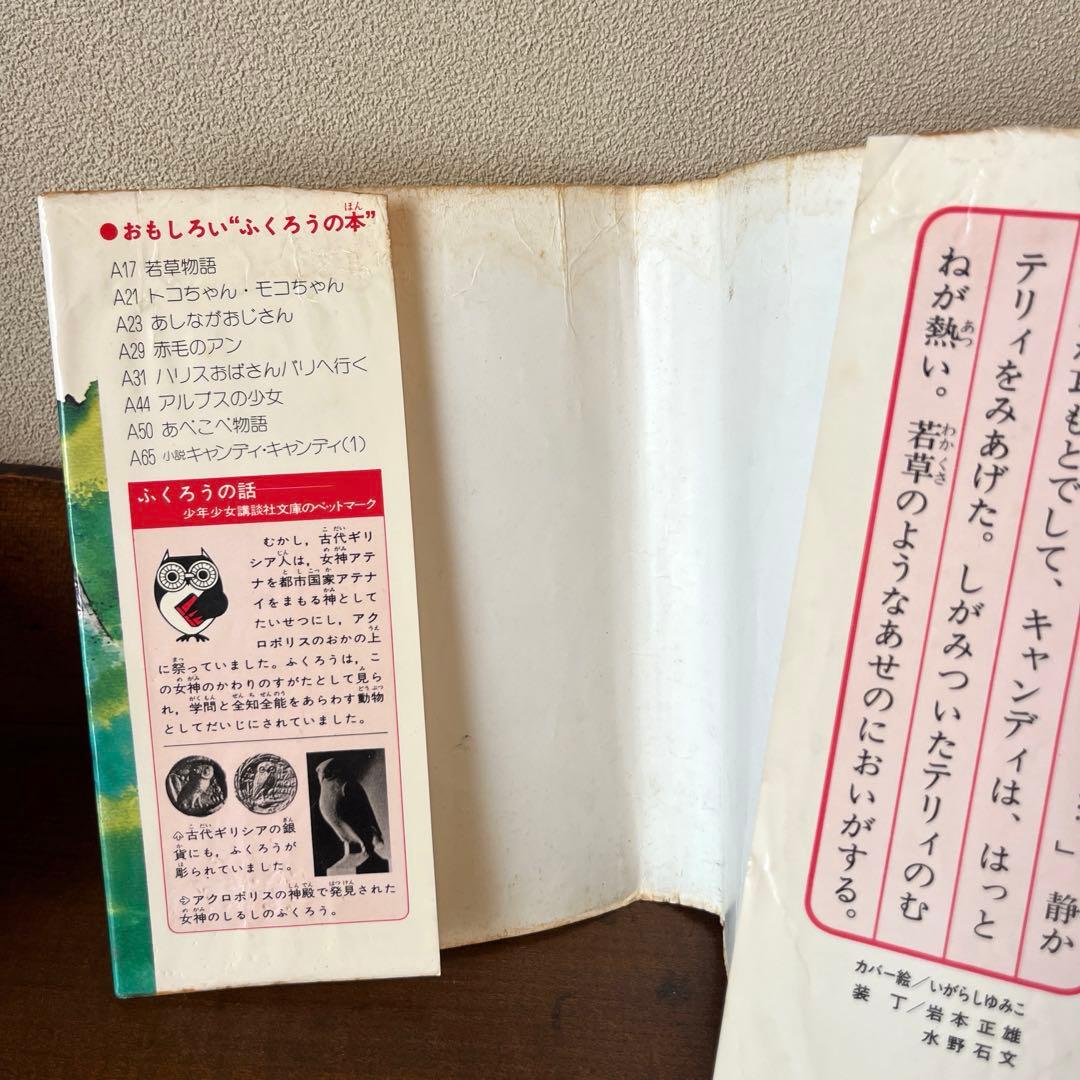 ●おもしろい“ふくろうの本”
ほん
A17 若草物語
A21 トコちゃん・モコちゃん
A23 あしながおじさん
A29 赤毛のアン
A31 ハリスおばさんパリへ行く
A44 アルプスの少女
A50 あべこべ物語
A65 小説キャンディ・キャンディ(1)
ふくろうの話
少年少女講談社文庫のペットマーク
むかし，古代ギリ
シア人は，女神アテ
ナを都市国家アテナ
イをまもる神として
たいせつにし，アク
ロポリスのおかの上
に祭っていました。ふくろうは，こ
の女神のかわりのすがたとして見ら
れ，学問と全知全能をあらわす動物
としてだいじにされていました。
古代ギリシアの銀
貨にも，ふくろうが
彫られていました。
アクロポリスの神殿で発見された
女神のしるしのふくろう。
」 静か
もとでして、キャンディは、はっと
テリィをみあげた。しがみついたテリィのむ
ねが熱い。若草のようなあせのにおいがする。
カバー絵／いがらしゆみこ
装 丁／岩本正雄
水野石文